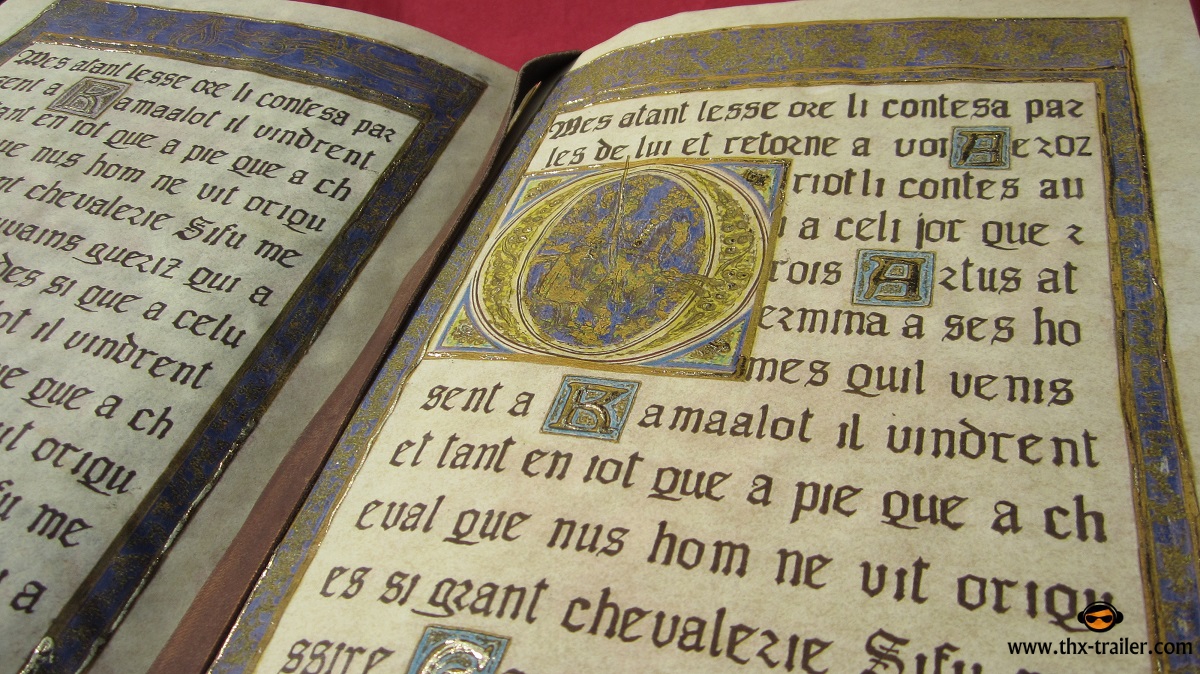 Mes atant lesse ore li contes a par
sent a Kamaalot il vindrent
tant en iot que a pie que a ch
ue nus hom ne vit oriqu
nt chevalerie Sifu me
uvains gueriz qui a
des si que a celu
ot il vindrent
ue que a ch
it oriqu
fu me
a
Mes atant lesse ore li contesa par
les de lui et retorne a voi Aeroz
riotli contes au
a celi jor que r
rois Artus at
ermina a ses ho
mes quil venis
sent a Kamaalot il vindrent
et tant en iot que a pie que a ch
eval que nus hom ne vit oriqu
es si grant chevalerie Sifu
ssire
www.thx-trailer.com